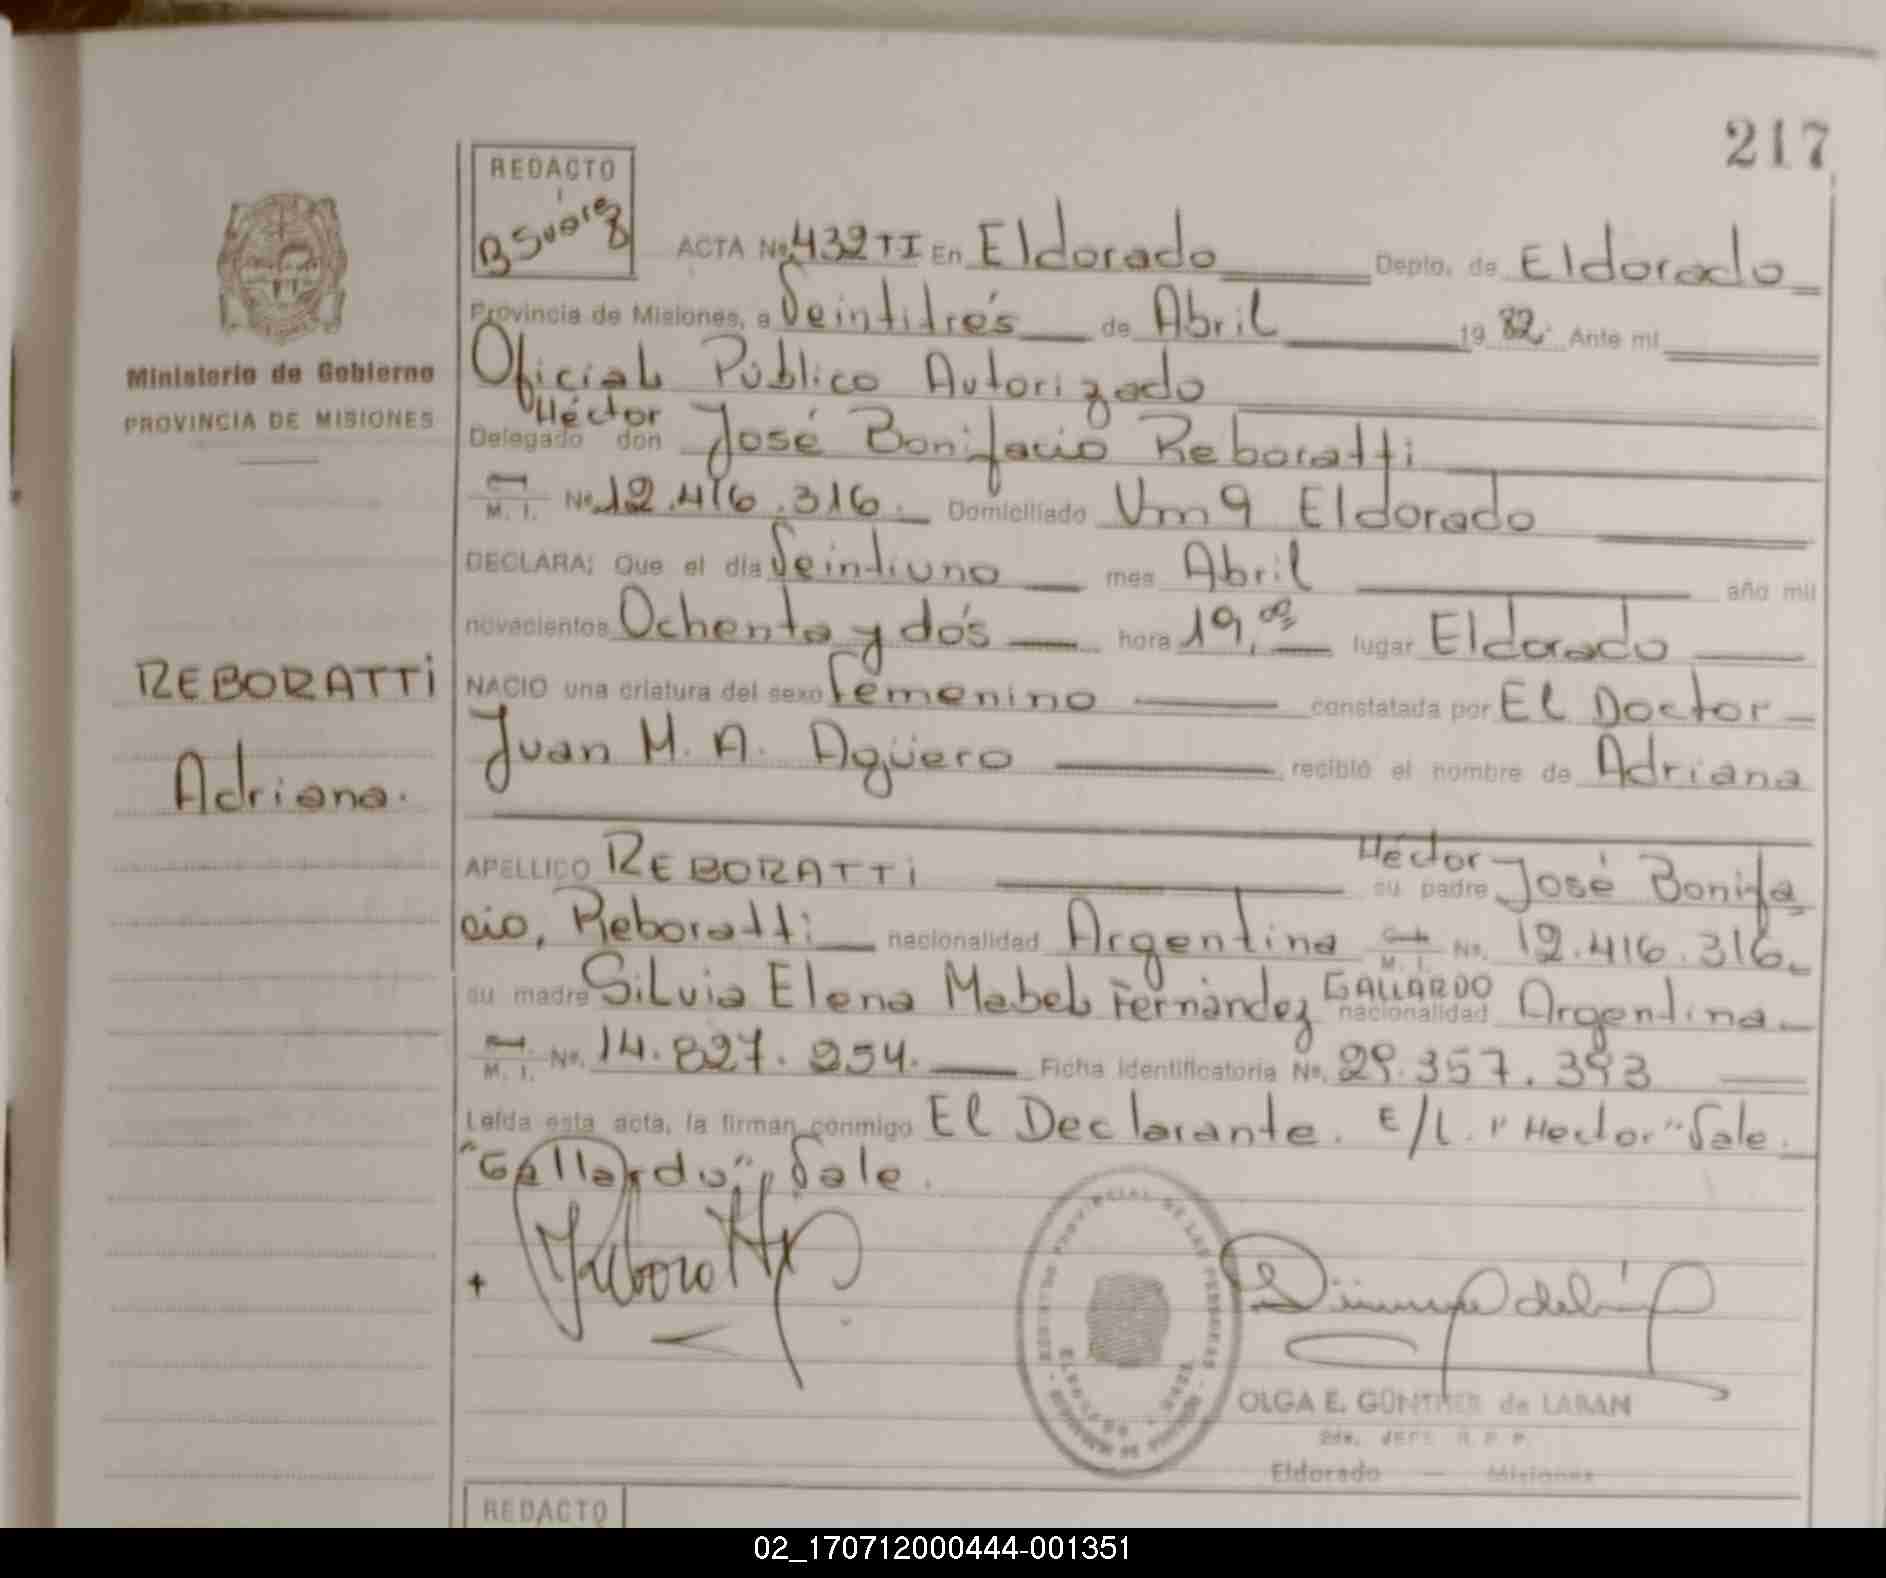 217
REDACTO
B Suárez
ACTA No. 432 TI En Eldorado Depto. de Eldorado
Provincia de Misiones, a Veintitrés de Abril 19 82. Ante mi
Oficial Público Autorizado
Ministerio de Gobierno
PROVINCIA DE MISIONES
Héctor
Delegado don José Bonifacio Reboratti
M. I. No. 12.416.316. Domiciliado Km 9 Eldorado
DECLARA: Que el día Veintiuno mes Abril año mil
novecientos Ochenta y dós hora 19,00 lugar Eldorado
REBORATTi
NACIO una criatura del sexo femenino constatada por El Doctor
Adriana.
Juan M. A. Agüero recibió el nombre de Adriana
Héctor
APELLIDO REBORATTi su padre José Bonifa
cio, Reboratti nacionalidad Argentina M. I. No. 12.416.316.
GALLARDO
su madre Silvia Elena Mabel Fernández nacionalidad Argentina
M. I. No. 14.827.254. Ficha identificatoria No. 29.357.393
Leída esta acta, la firman conmigo El Declarante. E/L. "Hector" Vale.
"Gallardo", Vale.
Reboratti
OLGA E. GÜNTHER de LABAN
2da. JEFE R. P. P.
Eldorado — Misiones
REDACTO
02_170712000444-001351